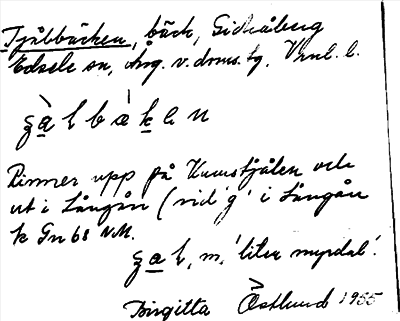 Tjälbäcken, bäck, Gideåberg
Edsele sn, Ång. v. doms. tg. Vnl. l.
ʒa l b æ k e n
Rinner upp på Kumstjälen och
ut i Långån (vid 'g' i Långån
k Gn 68 NM.
ʒa l, m, 'liten myrdal'.
Birgitta Östlund 1955